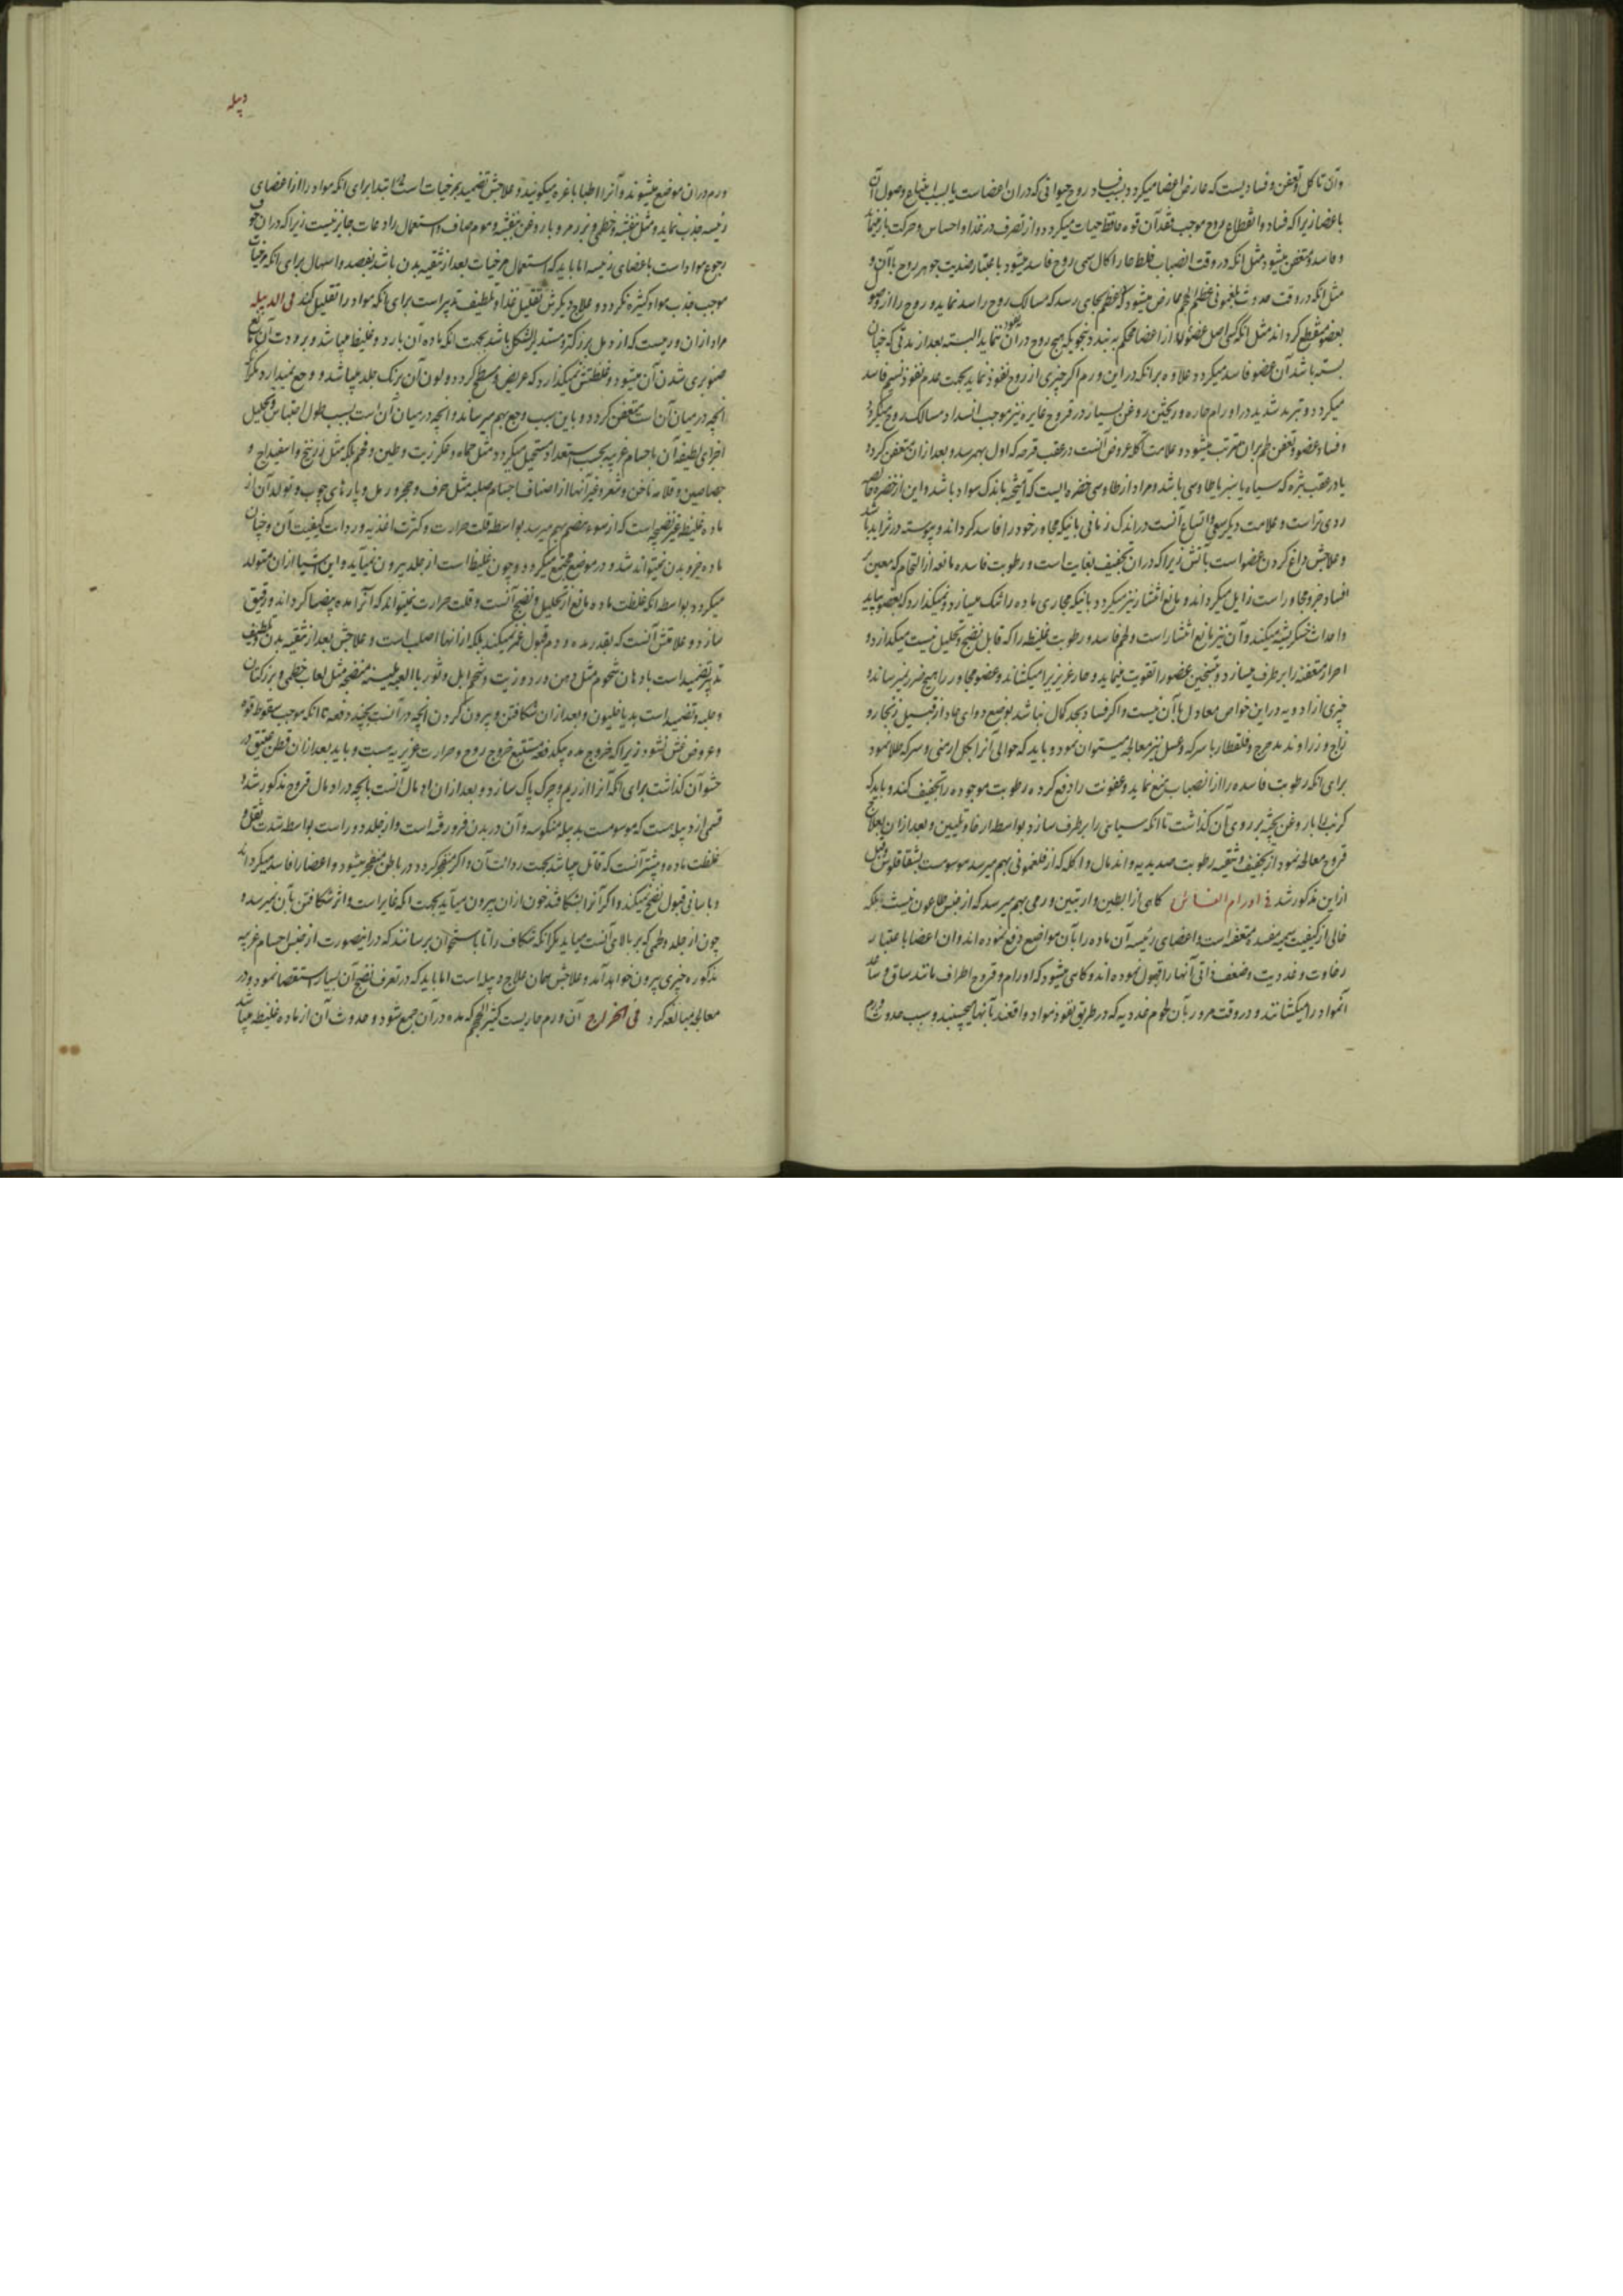 وآن تاکل وتعفن وفسادیست که عارض اعضا میکردد بسبب فساد روح حیوانی که دران اعضاست یا بسبب امتناع وصول آن
باعضا زیرا که فساد وانقطاع روح موجب فقدآن قوه حافظ حیات میکردد واز تصرف در غذا واحساس وحرکت باز
وفاسد ومتعفن میشود مثل انکه در وقت انصباب خلط حار اکال سمی روح فاسد میشود باعتبار ضدیت جوهر روح باآن و
مثل انکه در وقت حدوث فلغمونی عظیم الحجم عارض میشود که عظم بجای رسد که مسالک روح را سد نماید وروح را از
بعضو منقطع کرداند مثل انکه کسی اصل عضوی را از اعضا محکم به بندد بنحویکه هیچ روح درآن نفوذ ننماید البته بعد از مدتی که چنان
بسته باشد آن عضو فاسد میکردد علاوه برانکه در این ورم اکر چیزی از روح نفوذ نماید بجهت عدم نفوذ نسیم فاسد
میکردد وتبرید شدید در اورام حاره وریختن روغن بسیار در قروح غایره نیز موجب انسداد مسالک روح میکردد
وفساد عضو وتعفن لحم بران مترتب میشود وعلامت اکله عروض آنست در عقب قرحه که اول بهم رسد وبعد ازان متعفن کردد
یا در عقب بثره که سیاه یا سبز یا طاوسی باشد ومراد از طاوسی خضره ایست که آمیخته باندک سواد باشد واین از خضره خالصه
ردی تراست وعلامت دیکر سعی واتساع آنست در اندک زمانی بانیکه مجاور خود را فاسد کرداند وپیوسته در تزاید باشد
وعلاجش داغ کردن عضو است بآتش زیرا که دران تجفیف بغایت است ورطوبت فاسده مانعه از التحام که معین بر
افساد جزو مجاور است زایل میکرداند ومانع انتشار نیز میکردد بانیکه مجاری ماده را تنک میسازد ونمیکذارد که بعضو بیاید
واحداث خشکریشه میکند وآن نیز مانع انتشار است ولحم فاسد ورطوبت غلیظه را که قابل نضج وتحلیل نیست میکدازد و
اجزاء متعفنه را برطرف میسازد وبتسخین عضو را تقویت مینماید وحار غریزی را میکشاند وعضو مجاور را هیچ ضرر نمیرساند و
چیزی از ادویه در این خواص معادل باآن نیست واکر فساد بحد کمال نباشد بوضع دوای حاد از قبیل زنجار و
زاج وزراوند مدحرج وقلقطار با سرکه وعسل نیز معالجه میتوان نمود وباید که حوالی آنرا بکل ارمنی وسرکه طلا نمود
برای انکه رطوبت فاسده را از انصباب منع نماید وعفونت را دفع کرده رطوبت موجوده را تجفیف کند وباید که
کرنب را با روغن پخته بر روی آن کذاشت تا انکه سیاهی را برطرف سازد بواسطه ارخا وتلیین وبعد ازان بعلاج
قروح معالجه نمود از تجفیف وتنقیه رطوبت صدیدیه واندمال واکله که از فلغمونی بهم میرسد موسومست بشقاقلوس وقبل
ازین مذکور شد فی اورام المغابن کاهی از ابطین واربتین ورمی بهم میرسد که از جنس طاعون نیست بلکه
خالی از کیفیت سمیه مفسده متعفنه است واعضای رئیسه آن ماده را بآن مواضع دفع نموده اند وان اعضا باعتبار
رخاوت وغددیت وضعف ذاتی آنها را قبول نموده اند وکاهی میشود که اورام وقروح اطراف مانند ساق وساعد
آنمواد را میکشانند ودر وقت مرور بآن لحوم غددیه که در طریق نفوذ مواد واقعند بآنها میچسبند وسبب حدوث ورم
دبیله
ورم دران موضع میشوند وآنرا اطبا باغره میکویند وعلاجش تضمید بمرخیات است در ابتدا برای انکه مواد را از اعضای
رئیسه جذب نماید ومثل بنفشه وخطمی وبزر مرو با روغن بنفشه وموم صاف واستعمال رادعات جایز نیست زیرا که دران خوف
رجوع مواد است باعضای رئیسه اما باید که استعمال مرخیات بعد از تنقیه بدن باشد بفصد واسهال برای انکه مرخیات
موجب جذب مواد کثیره نکردد وعلاج دیکرش تقلیل غذا وتلطیف تدبیر است برای انکه مواد را تقلیل کند فی الدبیله
مراد ازان ورمیست که از دمل بزرکتر ومستدیر الشکل باشد بجهت انکه ماده آن بارد وغلیظ میباشد وبرودت آن مانع
صنوبری شدن آن میشود وغلظتش نمیکذارد که عریض ومسطح کردد ولون آن برنک جلد میباشد ووجع نمیدارد مکر آنکه
آنچه در میان آن است متعفن کردد وباین سبب وجع بهم میرساند وآنچه در میان آن است بسبب طول احتباس وتحلیل
اجزای لطیفه آن باجسام غریبه بحسب استعداد مستحیل میکردد مثل حماه وعکر زیت وطین وفحم بلکه مثل زرنیخ واسفیداج و
جصاصین وقلامه ناخن وشعر وغیر آنها از اصناف اجسام صلبه مثل خزف وحجر ورمل وپارهای چوب وتولد آن از
ماده غلیظ غیر نضیجه است که از سوء هضم بهم میرسد بواسطه قلت حرارت وکثرت اغذیه ورداءت کیفیت آن وچنان
ماده جزو بدن نمیتواند شد ودر موضع مجتمع میکردد وچون غلیظ است از جلد بیرون نمیآید واین اشیا ازان متولد
میکردد بواسطه انکه غلظت ماده مانع از تحلیل ونضج آنست وقلت حرارت نمیتواند که آنرا مده بیضا کرداند ورقیق
سازد وعلامتش آنست که بقدر مده ودم قبول غمز نمیکند بلکه ازانها اصلب است وعلاجش بعد از تنقیه بدن وتلطیف
تدبیر تضمید است بادهان شحوم مثل دهن ورد وزیت وشحم ابل وثور یا العبه ملینه منضجه مثل لعاب خطمی وبزر کتان
وحلبه وتضمید است بدیاخیلیون وبعد ازان شکافتن وبیرون کردن آنچه درآنست بچند دفعه تا انکه موجب سقوط قوه
وعروض غشی نشود زیرا که خروج مده بیکدفعه مستتبع خروج روح وحرارت غریزیه است وباید بعد ازان قطن عتیق در
حشو آن کذاشت برای انکه آنرا از ریم وچرک پاک سازد وبعد ازان ادمال آنست بانچه در ادمال قروح مذکور شد و
قسمی از دبیله ست که موسومست بدبیله منکوسه وآن در بدن فرو رفته است واز جلد دور است بواسطه شدت ثقل و
غلظت ماده وبیشتر آنست که قاتل میباشد بجهت رداءت آن واکر منفجر کردد در باطن منفجر میشود واعضا را فاسد میکرداند
وبآسانی قبول نضج نمیکند واکر آنرا بشکافند خون ازان بیرون میآید بجهت انکه غایر است واثر شکافتن بآن نمیرسد و
چون از جلد ولحمی که بر بالای آنست میآید مکر انکه شکاف را تا باستخوان برسانند که درانصورت از جنس اجسام غریبه
مذکوره چیزی بیرون خواهد آمد وعلاجش همان علاج دبیله است اما باید که در تعرف نضج آن بسیار استقصا نمود ودر
معالجه مبالغه کرد فی الخراج آن ورم حاریست کثیر الحجم که مده درآن جمع شود وحدوث آن از ماده غلیظه میباشد